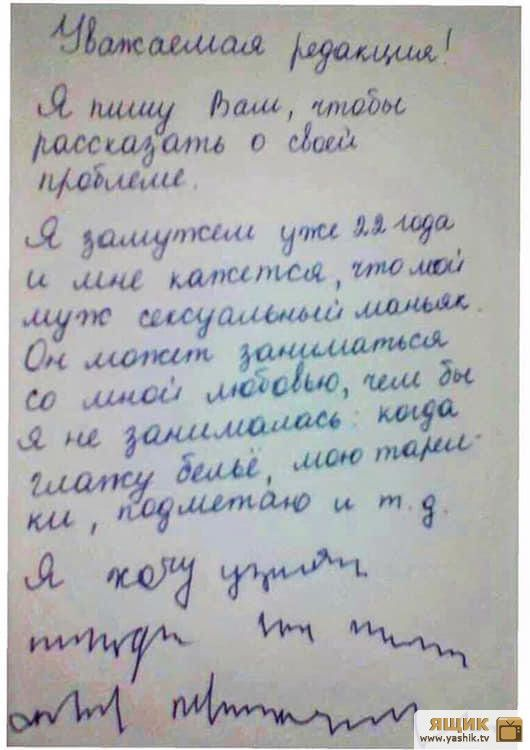 Уважаемая редакция!
Я пишу Вам, чтобы
рассказать о своей
проблеме.
Я замужем уже 22 года
и мне кажется, что мой
муж сексуальный маньяк.
Он может заниматься
со мной любовью, чем бы
я не занималась: когда
глажу бельё, мою тарел-
ки, подметаю и т.д.
Я хочу
ЯЩИК tv
www.yashik.tv